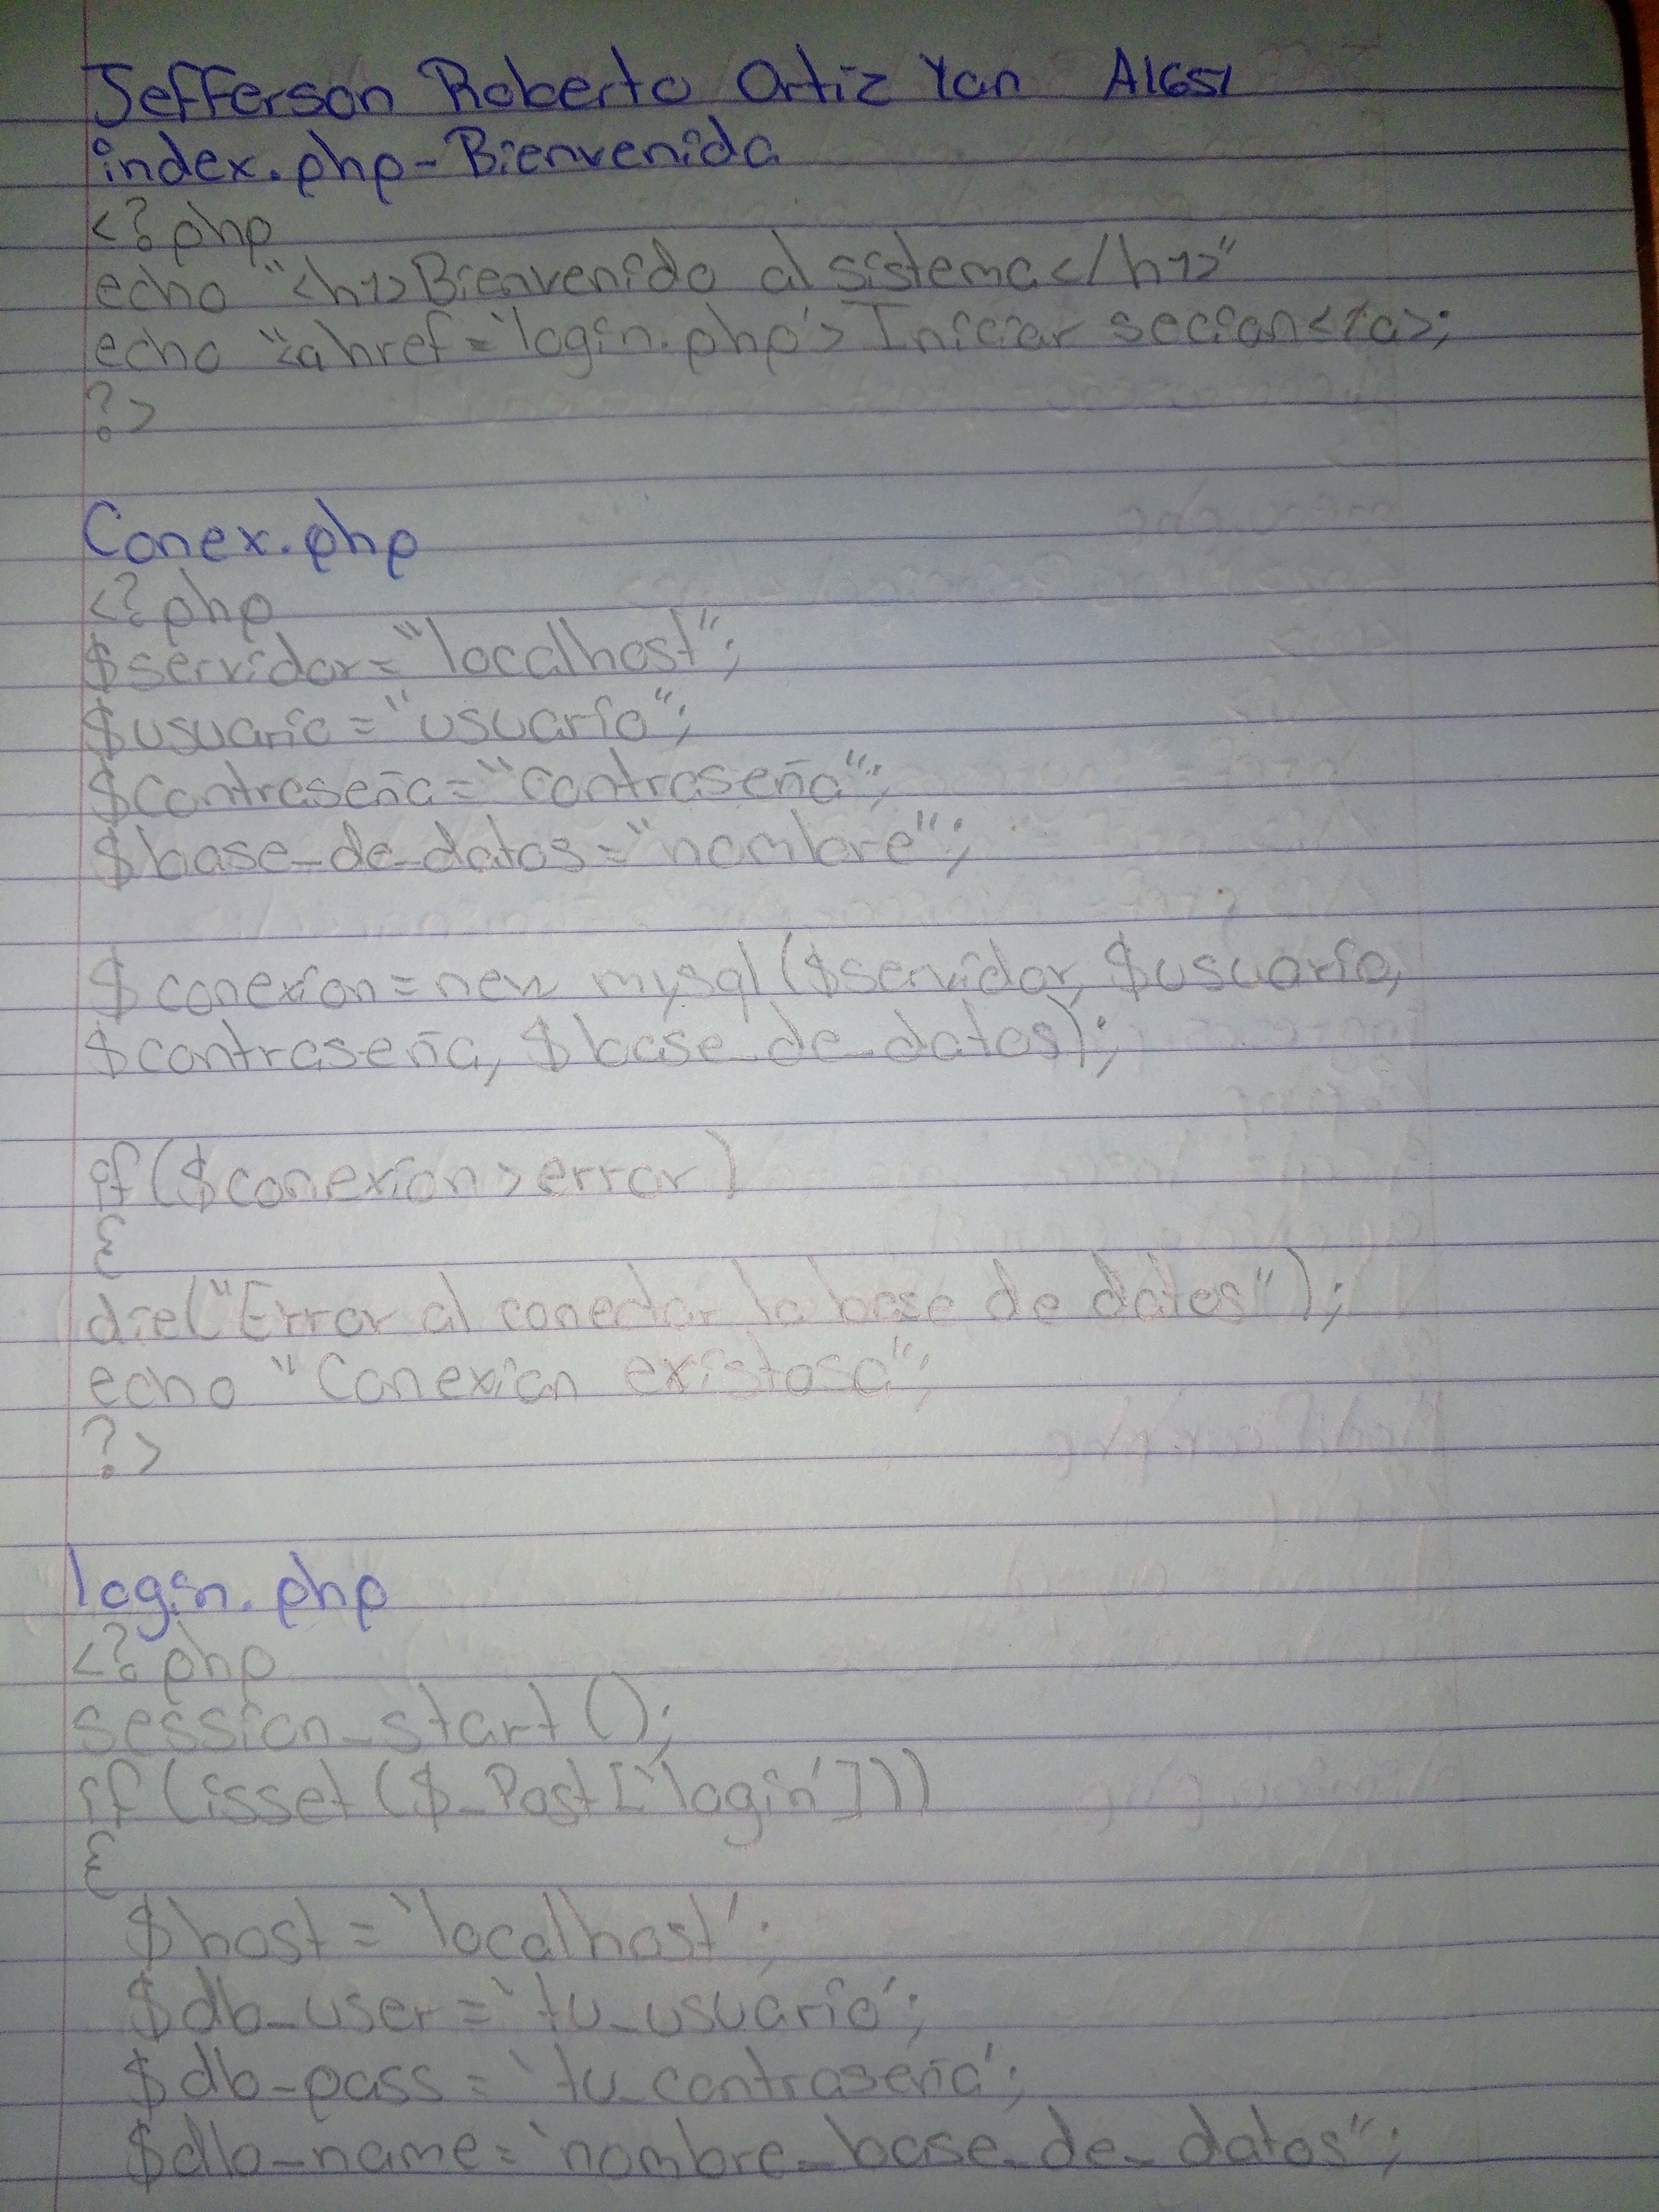 Jefferson Roberto Ortiz Yan A1651
index.php-Bienvenida
<?php
echo "<h1>Bienvenido al sistema</h1>"
echo "<a href='login.php'>Iniciar secion</a>;
?>
Conex.php
<?php
$servidor="localhost";
$usuario="usuario";
$contraseña="contraseña";
$base_de_datos="nombre";
$conexion=new mysql($servidor, $usuario,
$contraseña, $base_de_datos);
if($conexion>error)
{
die("Error al conectar la base de datos");
echo "Conexion existosa";
?>
login.php
<?php
session_start();
if(isset($_Post['login']))
{
$host='localhost';
$db_user='tu_usuario';
$db-pass='tu_contraseña';
$db_name='nombre_base_de_datos";